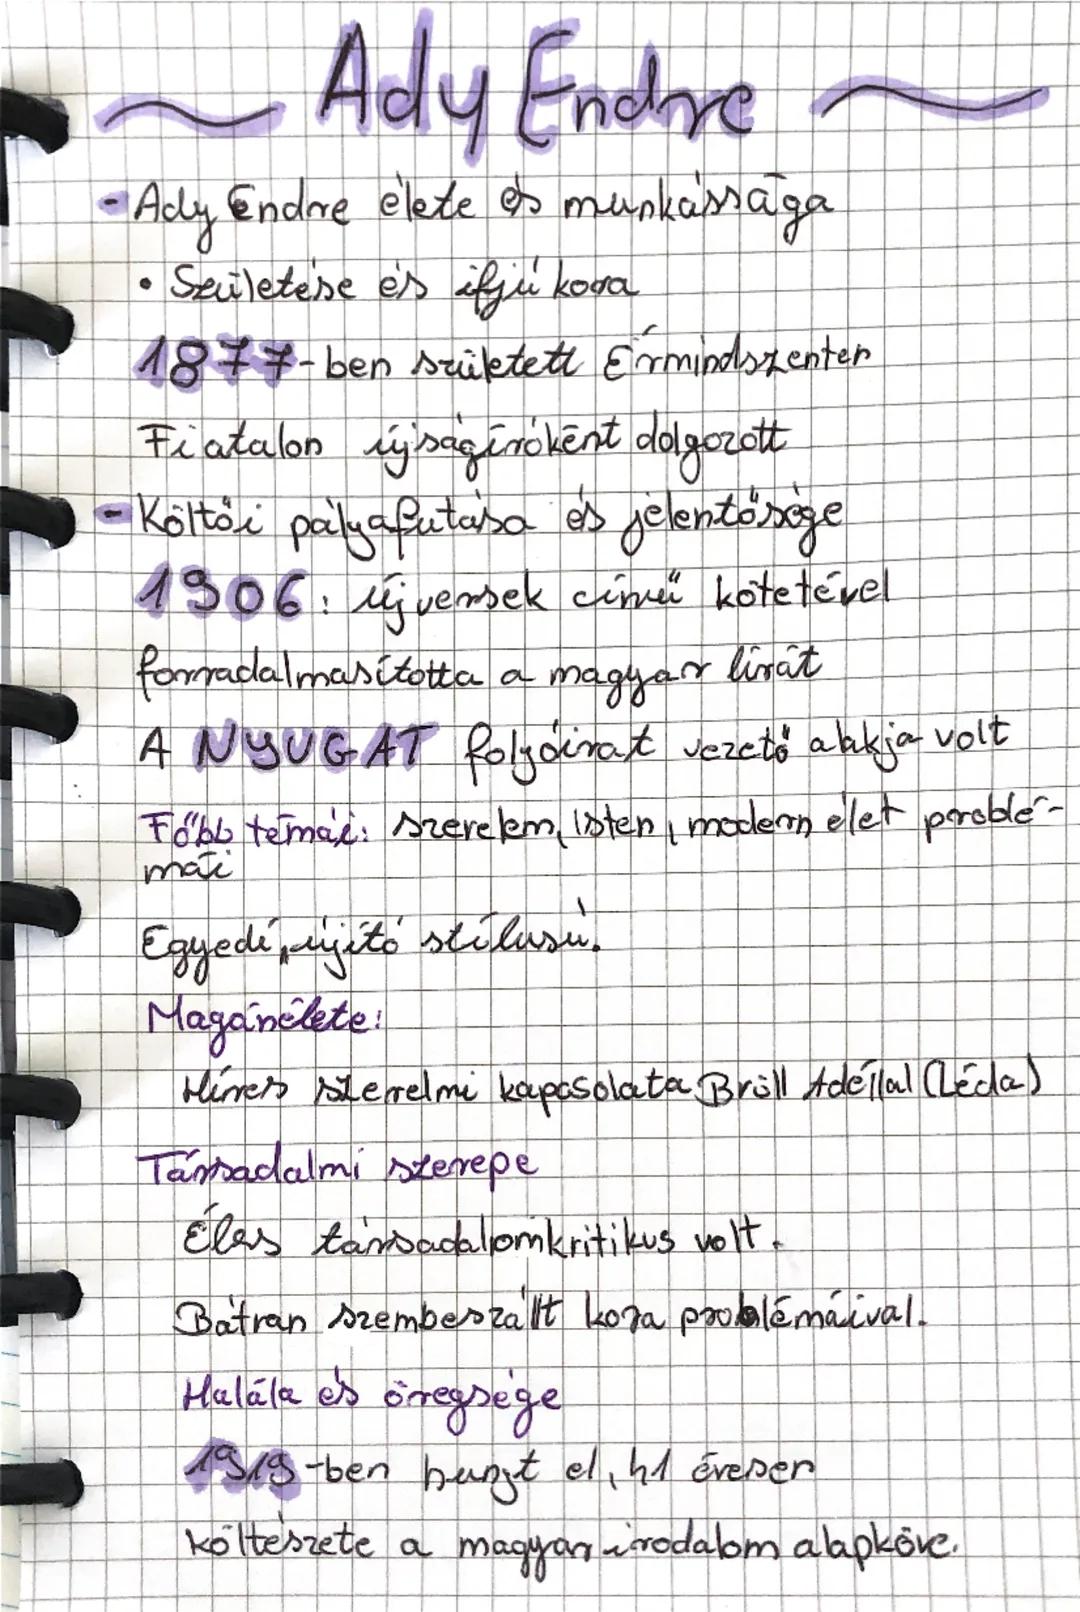 Ady Endre
- Ady Endre élete és munkássága
• Születése és ifjú kora
1877-ben született Érmindszenten
Fiatalon újságíróként dolgozott
- Költői pályafutása és jelentősége
1906: új versek című kötetével
forradalmasította a magyar lírát
A NYUGAT folyóirat vezető alakja volt
Főbb témái: szerelem, Isten, modern élet problé-
mái
Egyedi, újító stílusú.
Magánélete:
Híres szerelmi kapcsolata Brüll Adéllal (Léda)
Társadalmi szerepe
Éles társadalomkritikus volt.
Bátran szembeszállt kora problémáival.
Halála és öregsége
1919-ben hunyt el, 41 évesen
költészete a magyar irodalom alapköve.